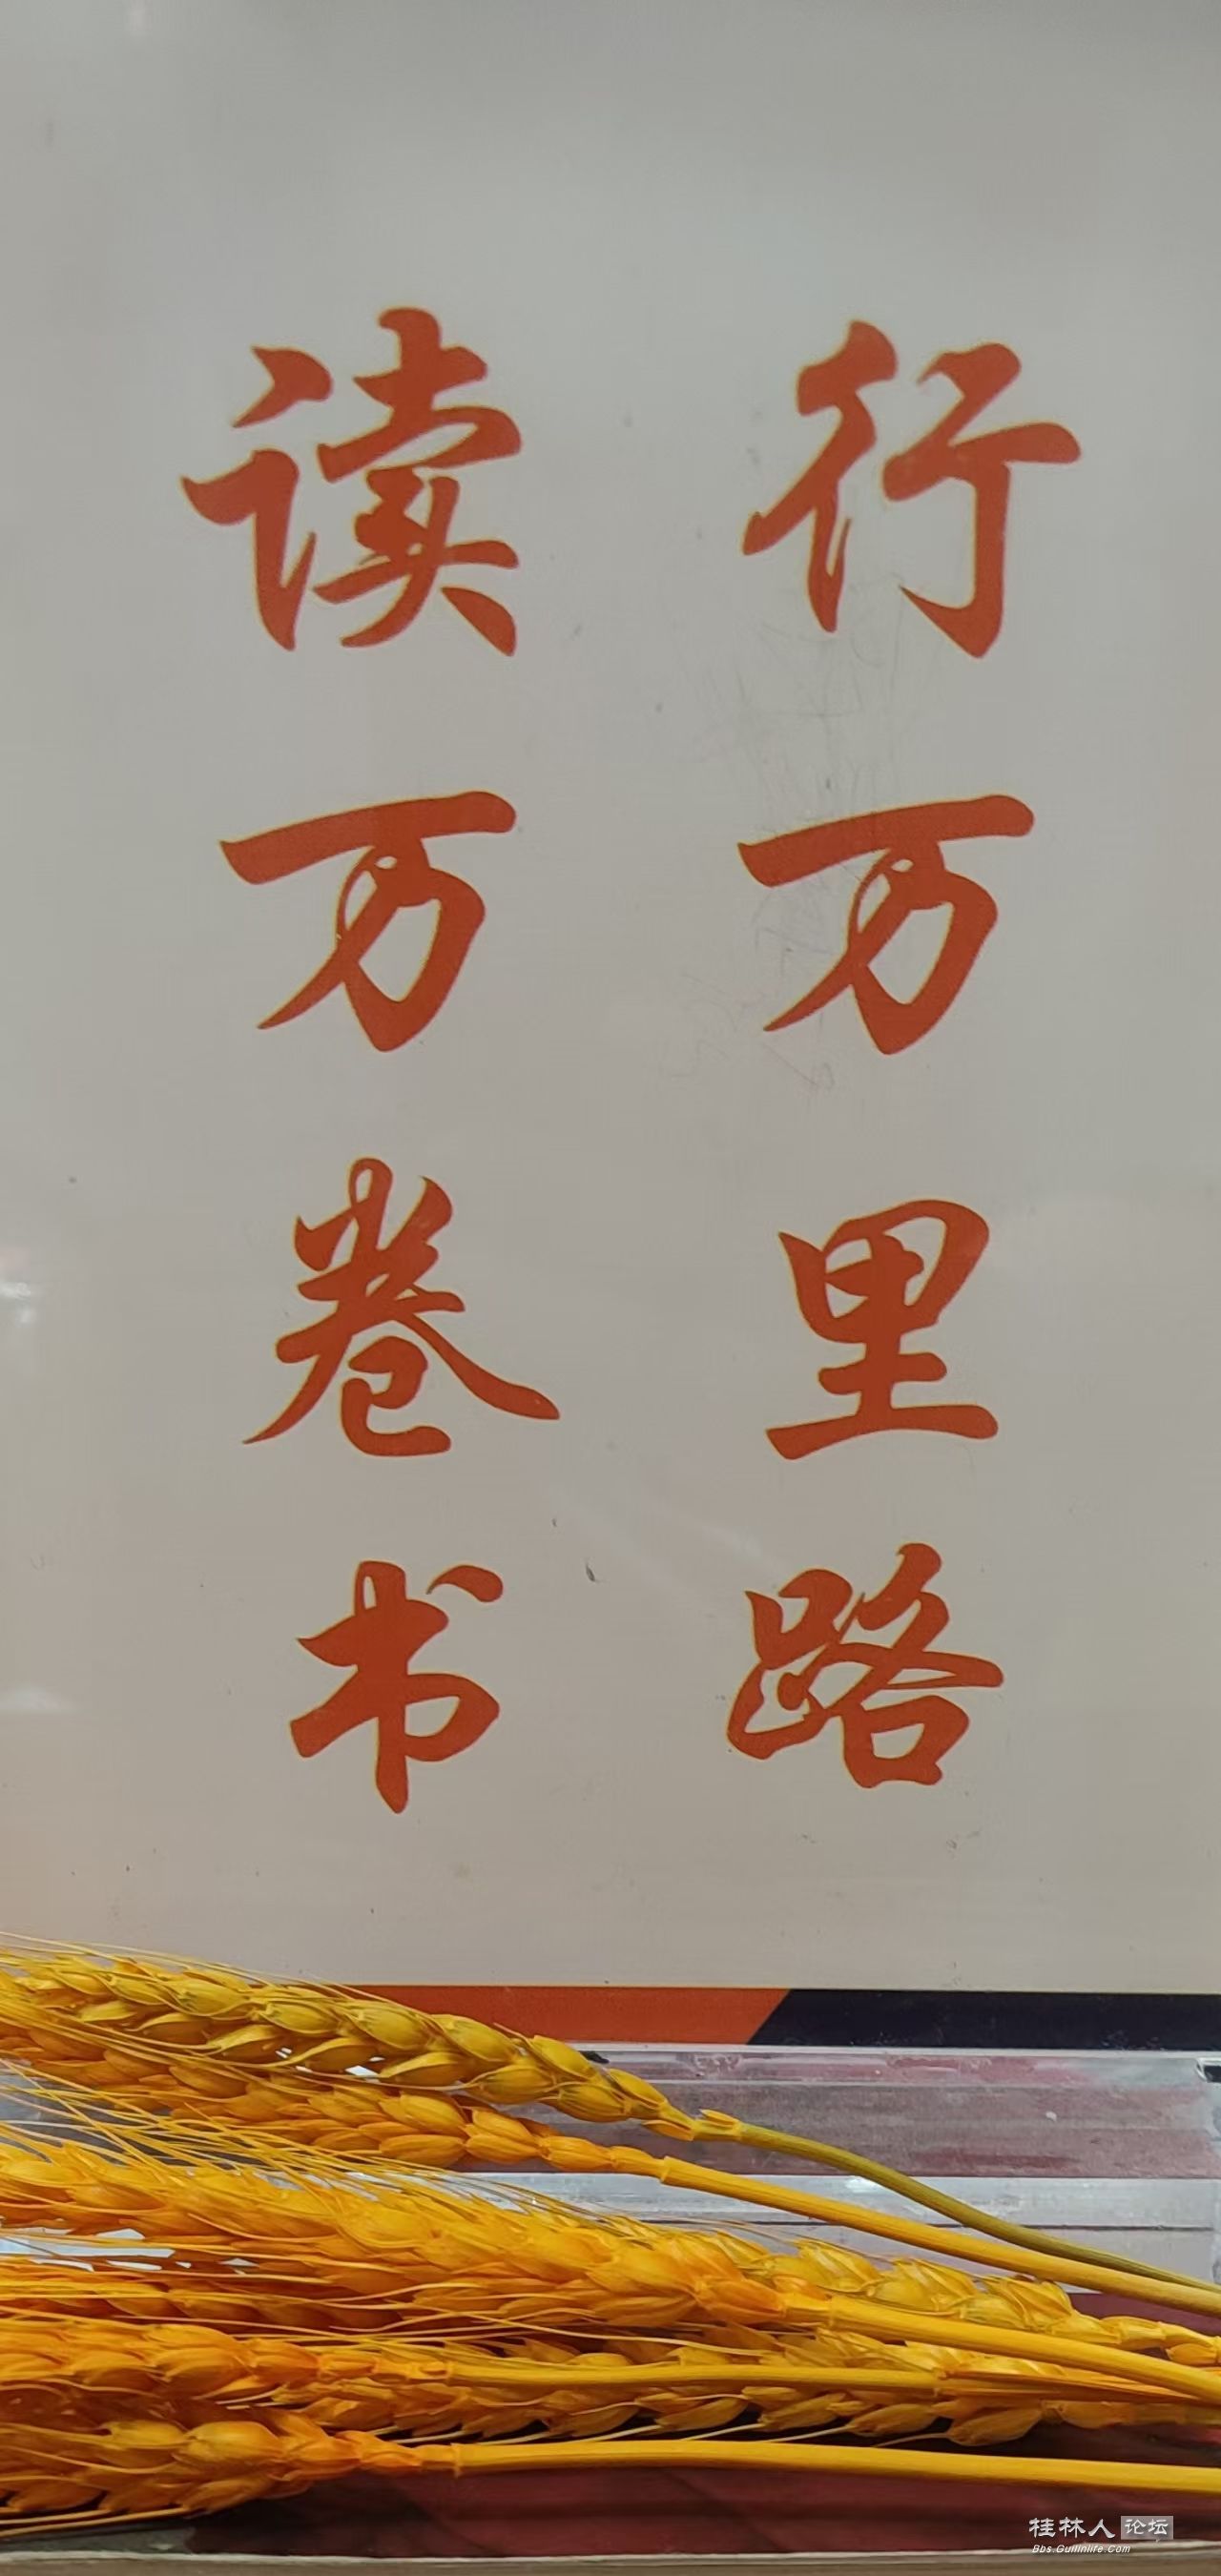 读万卷书
行万里路
桂林人论坛
Bbs.Guilinlife.Com